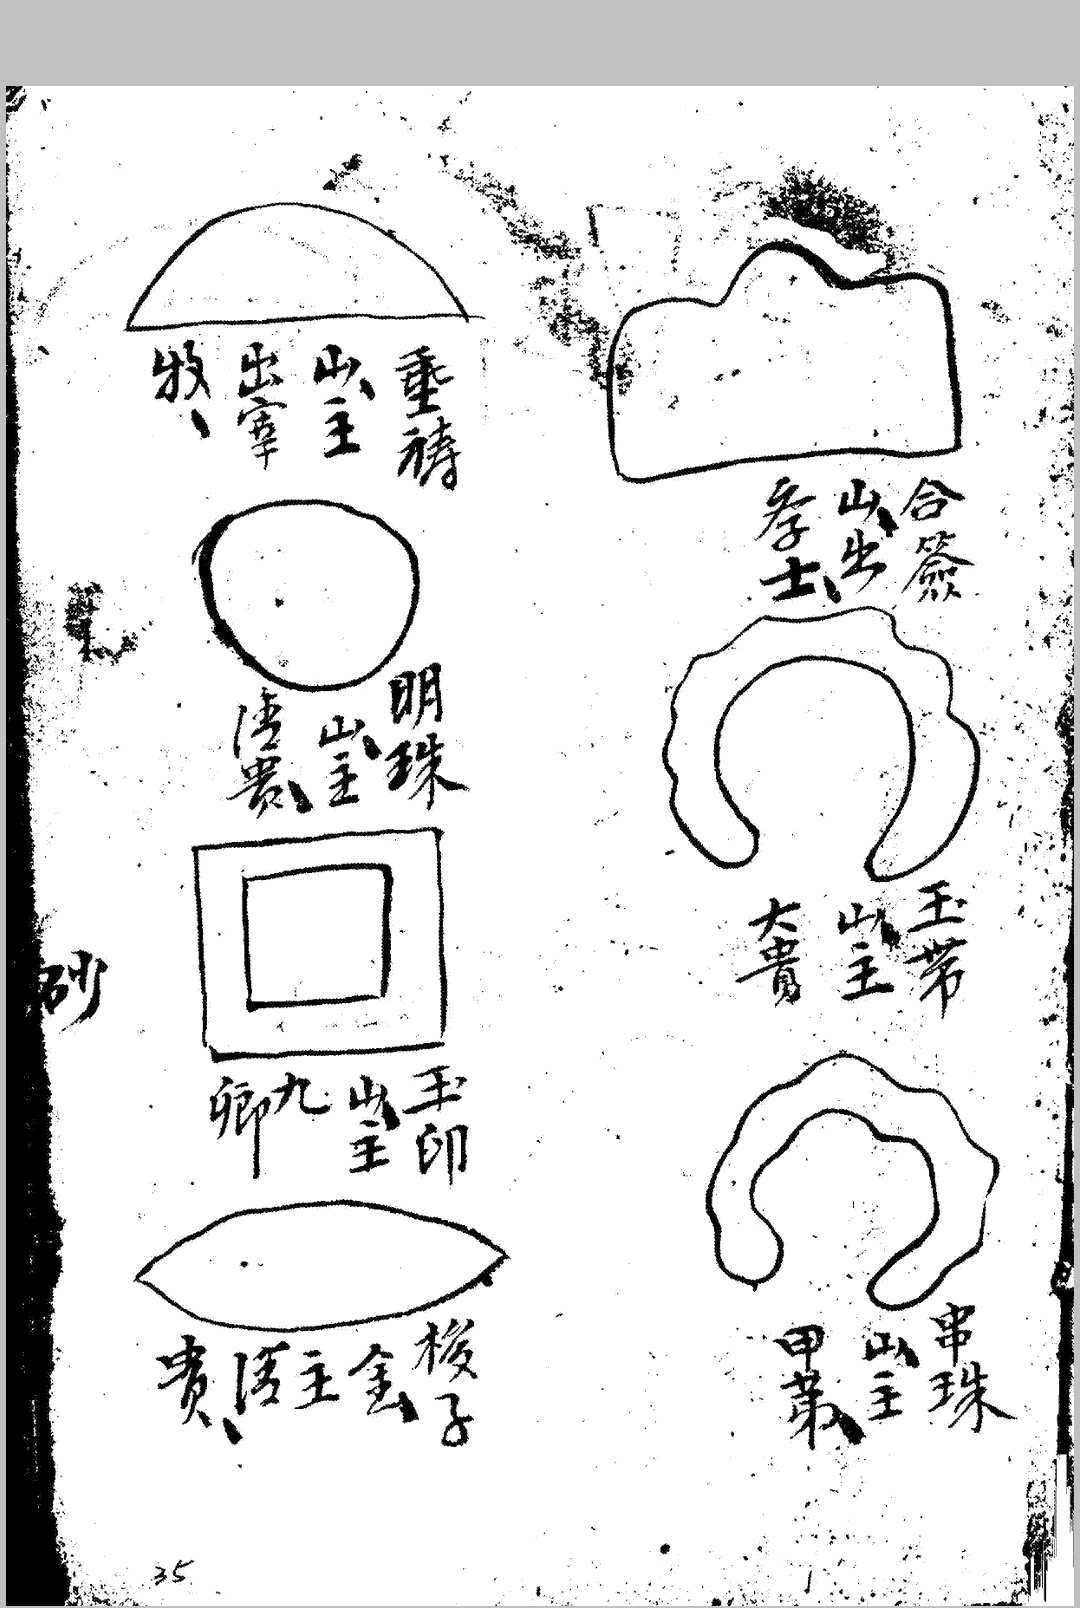 合簽
山出
孝士
玉帶
山主
大貴
串珠
山主
甲第
垂禱
山主
出宰
牧
明珠
山主
清貴
玉印
山主
九
卿
梭
子
金
主
清
貴
砂
35